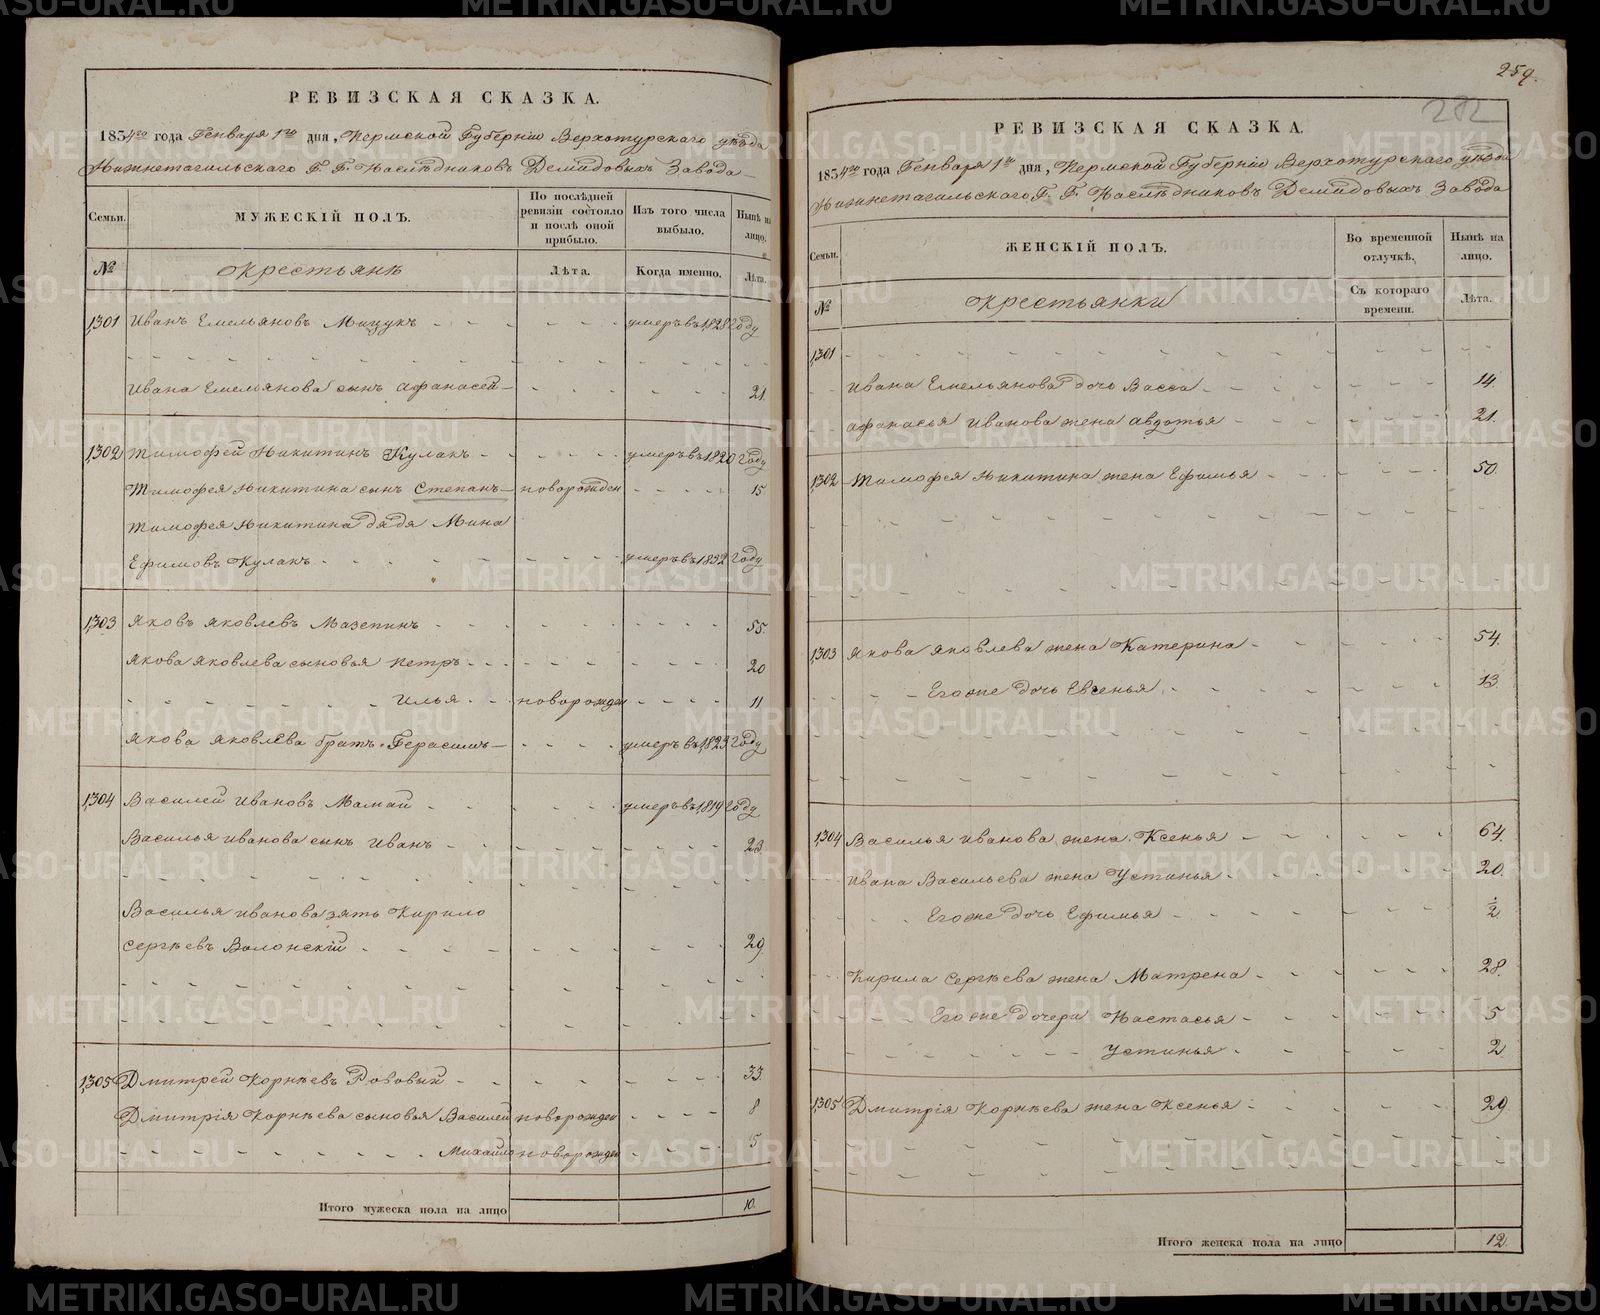 РЕВИЗСКАЯ СКАЗКА.
1834го года Генваря 1го дня, Пермской Губерніи Верхотурскаго уѣзда
Нижнетагильскаго Г. Г. Наслѣдниковъ Демидовыхъ Завода
Семьи.
МУЖЕСКІЙ ПОЛЪ.
По послѣдней ревизіи состояло и послѣ оной прибыло.
Изъ того числа выбыло.
Нынѣ на лицо.
№
Крестьянѣ
Лѣта.
Когда именно.
Лѣта.
1301 Иванъ Емельяновъ Мацукъ умеръ въ 1828 году
Ивана Емельянова сынъ Афанасей 21.
1302 Тимофей Никитинъ Кулакъ умеръ въ 1820 году
Тимофея Никитина сынъ Степанъ новорожден 15
Тимофея Никитина дядя Мина
Ефимовъ Кулакъ умеръ въ 1832 году
1303 Яковъ Яковлевъ Мазепинъ 55.
Якова Яковлева сыновья Петръ 20
Илья новорожден 11
Якова Яковлева братъ Герасимъ умеръ въ 1823 году
1304 Василей Ивановъ Мамаи умеръ въ 1819 году
Василья Иванова сынъ Иванъ 23.
Василья Иванова зять Кирило
Сергѣевъ Волонскій 29.
1305 Дмитрей Корнѣевъ Рововый 33.
Дмитрія Корнѣева сыновья Василей новорожден 8
Михайло новорожден 5
Итого мужеска пола на лицо 10.
259.
282
РЕВИЗСКАЯ СКАЗКА.
1834го года Генваря 1го дня, Пермской Губерніи Верхотурскаго уѣзда
Нижнетагильскаго Г. Г. Наслѣдниковъ Демидовыхъ Завода
Семьи.
ЖЕНСКІЙ ПОЛЪ.
Во временной отлучкѣ.
Нынѣ на лицо.
№
Крестьянки
Съ котораго времени.
Лѣта.
1301
Ивана Емельянова дочь Васса 14.
Афанасья Иванова жена Авдотья 21.
1302 Тимофея Никитина жена Ефимья 50.
1303 Якова Яковлева жена Катерина 54.
Егоже дочь Евсенья 13.
1304 Василья Иванова жена Ксенья 64.
Ивана Васильева жена Устинья 20.
Егоже дочь Ефимья ½
Кирила Сергѣева жена Матрена 28.
Егоже дочери Настасья 5
Устинья 2
1305 Дмитрія Корнѣева жена Ксенья 29
Итого женска пола на лицо 12.
METRIKI.GASO-URAL.RU